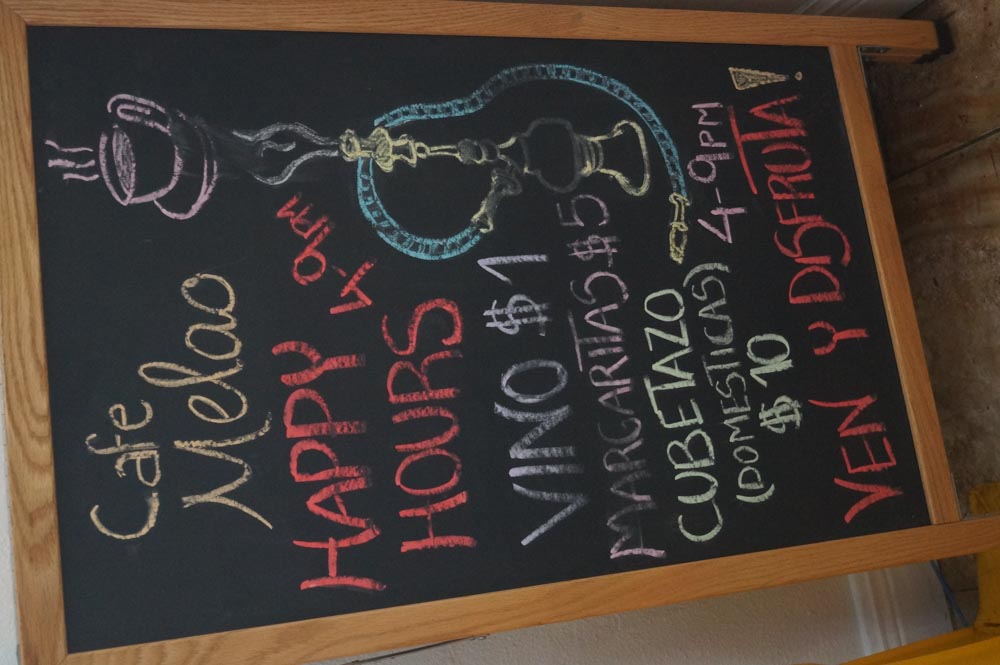 Cafe
Melao
HAPPY 9PM
HOURS
VINO $1
MARGARITAS $5
CUBETAZO
(DOMESTICAS) 4-9PM
$10
VEN Y DISFRUTA!